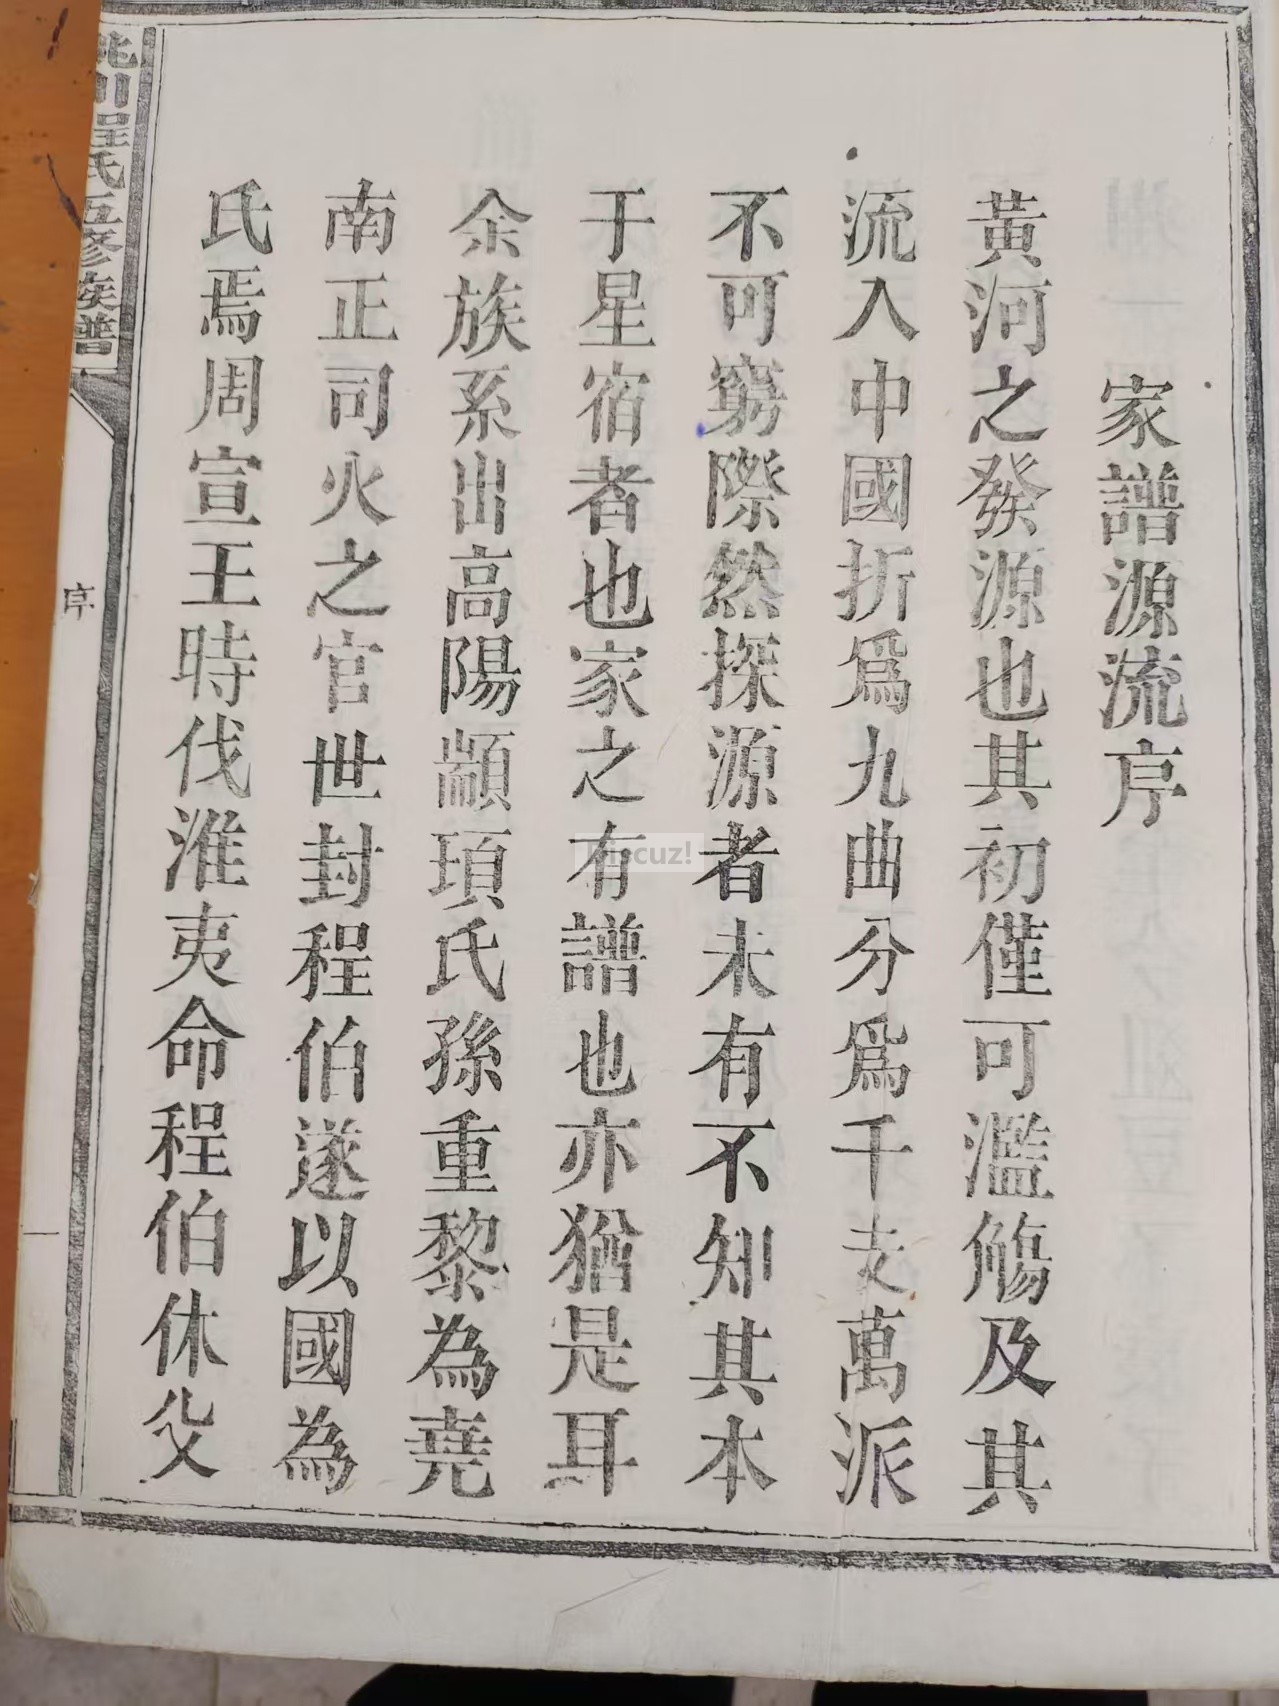 家譜源流序
黃河之發源也其初僅可濫觴及其
流入中國折爲九曲分爲千支萬派
不可窮際然探源者未有不知其本
于星宿者也家之有譜也亦猶是耳
余族系出高陽顓頊氏孫重黎為堯
南正司火之官世封程伯遂以國為
氏焉周宣王時伐淮夷命程伯休父
川程氏五修族譜
序
一
Discuz!